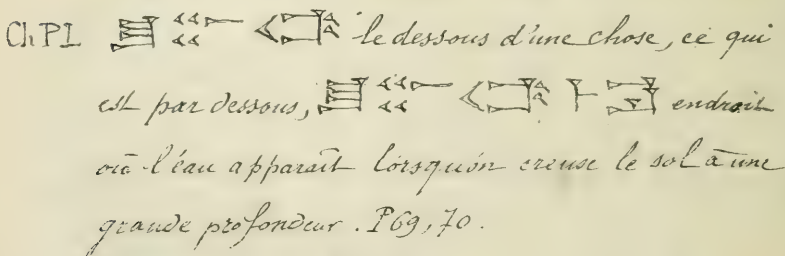 Ch PI le dessous d'une chose, ce qui
est par dessous, endroit
où l'eau apparaît lorsqu'on creuse le sol à une
grande profondeur. P69, 70.